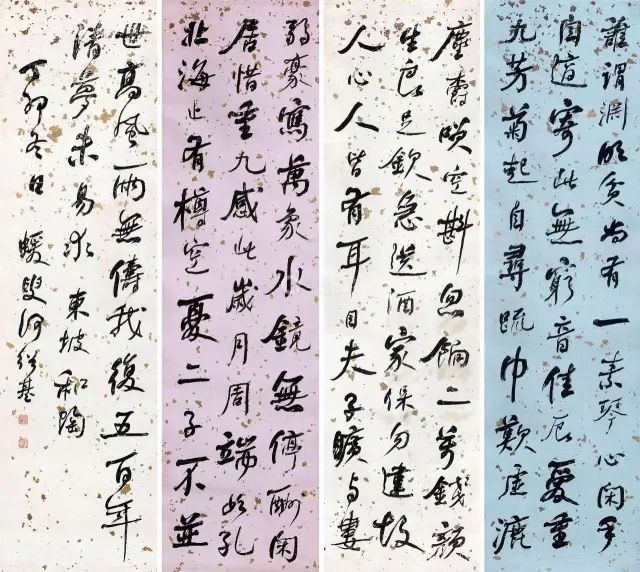 誰謂淵明貧尚有一素琴心閑手
自適寄此無窮音佳辰愛重
九芳菊起自尋疏巾歎虛漉
塵爵咲空斟忽餉二萬錢顏
生良足欽急送酒家保勿違故
人心人皆有耳目夫子曠與婁
弱豪寫萬象水鏡無停酬閑
居惜重九感此歲月周端如孔
北海止有樽空憂二子不並
世高風兩無儔我復五百年
清夢未易求 東坡和陶
丁卯冬日 蝯叟何紹基